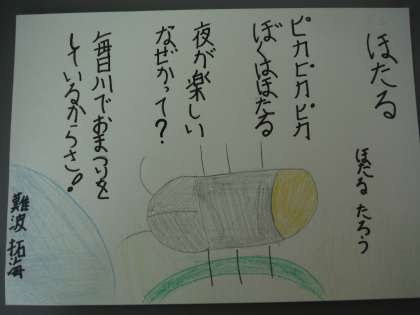 ほたる
ほたる たろう
ピカピカピカ
ぼくはほたる
夜が楽しい
なぜかって?
毎日川でおまつりを
しているからさ!
難波 拓海